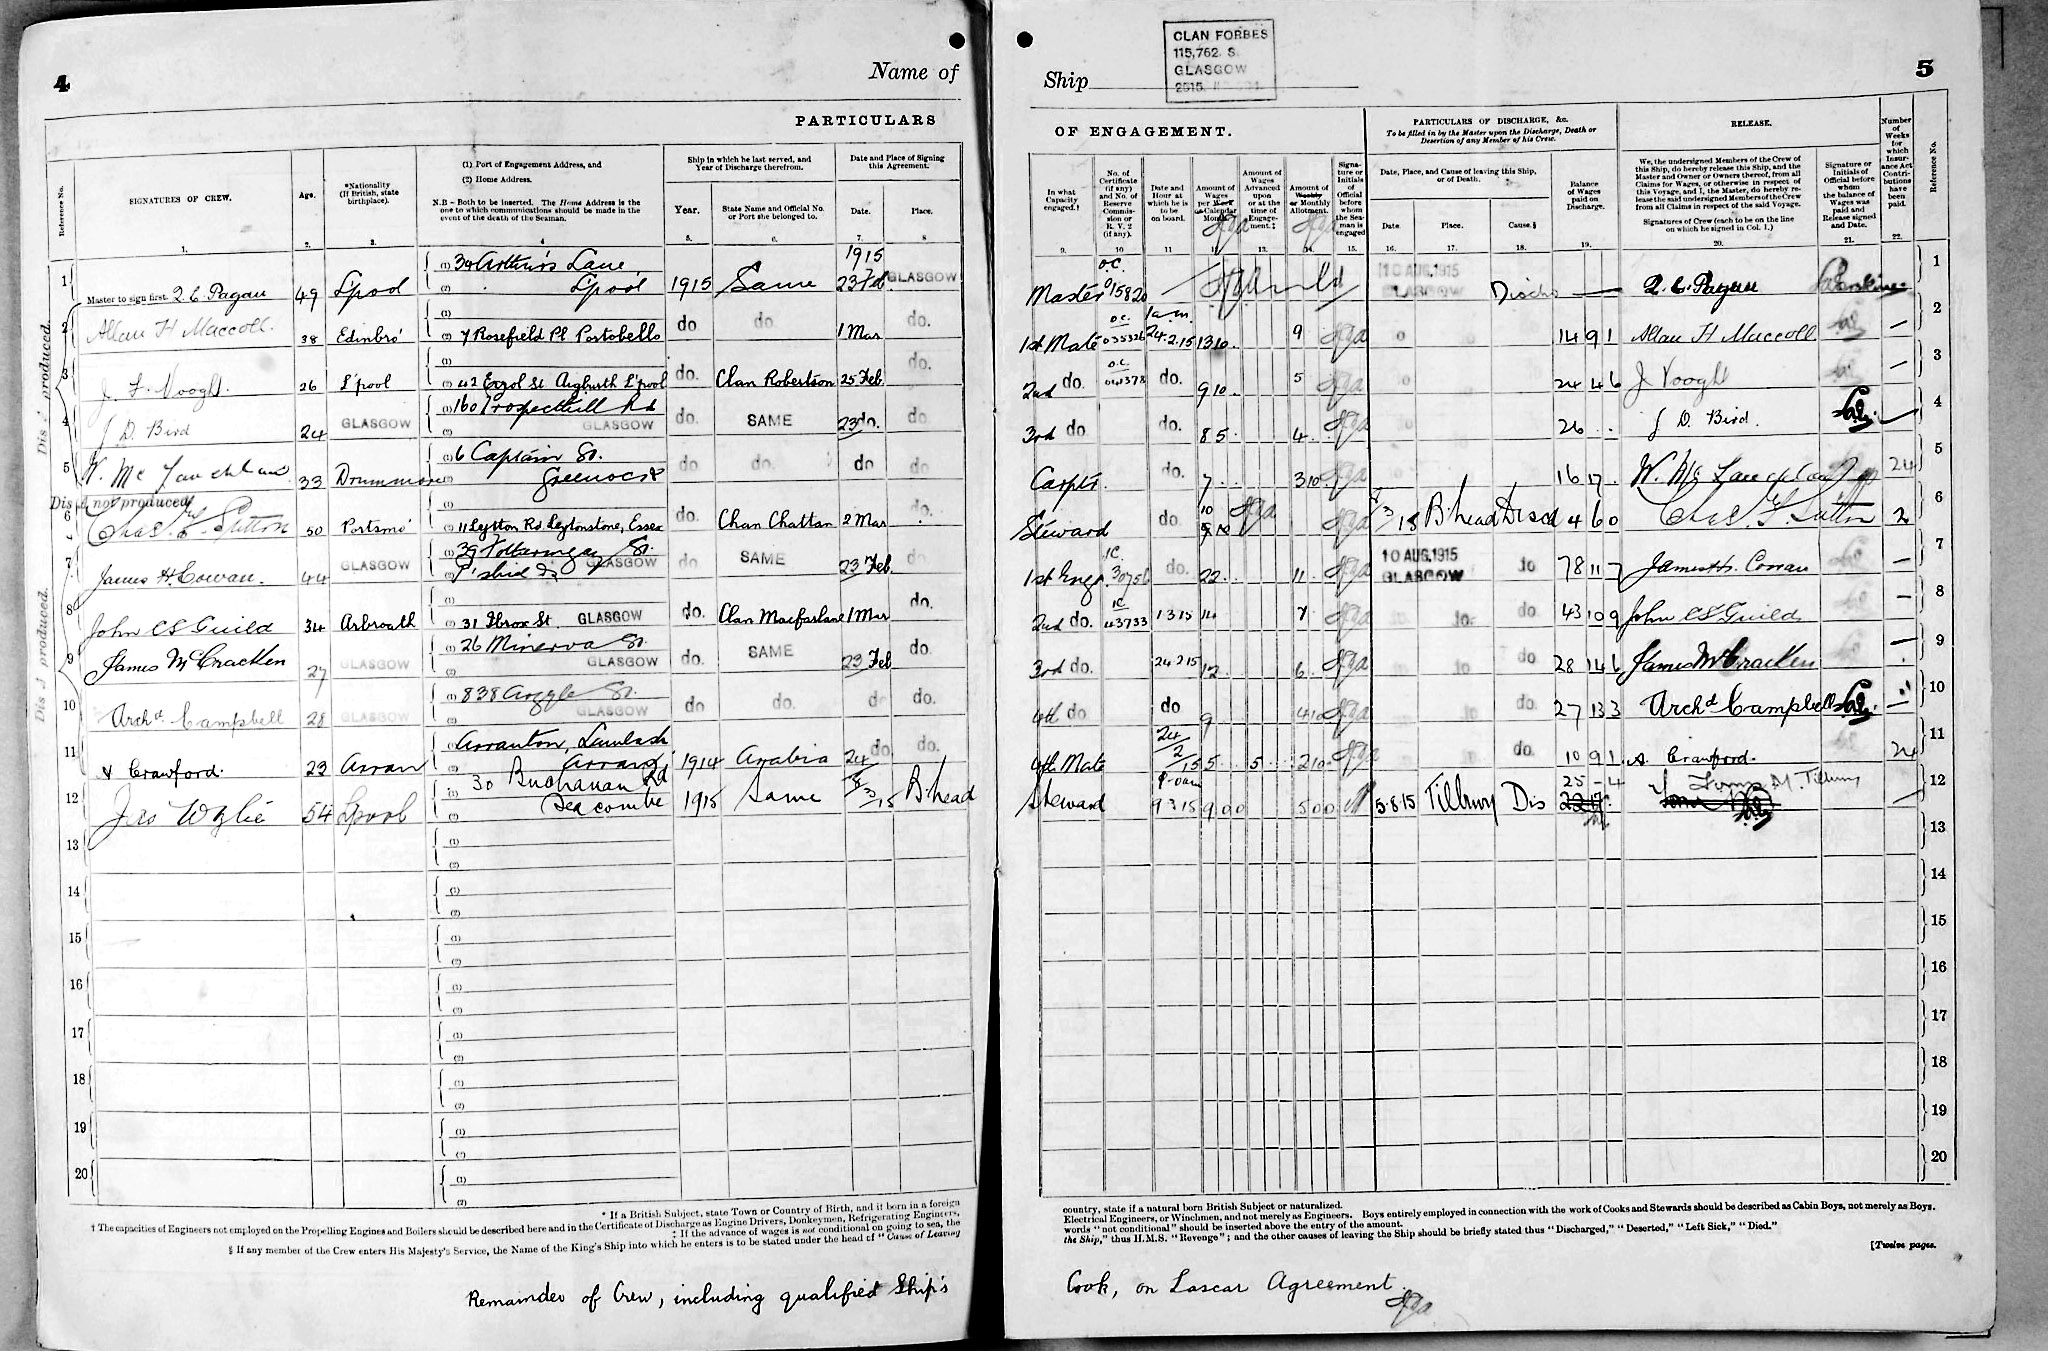 4
Name of
PARTICULARS
Reference No.
SIGNATURES OF CREW.
Age.
*Nationality
(If British, state
birthplace).
(1) Port of Engagement Address, and
(2) Home Address.
N.B – Both to be inserted. The Home Address is the
one to which communications should be made in the
event of the death of the Seaman.
Ship in which he last served, and
Year of Discharge therefrom.
Year.
State Name and Official No.
or Port she belonged to.
Date and Place of Signing
this Agreement.
Date.
Place.
1. 2. 3. 4 5. 6. 7. 8
1915
1 Master to sign first. 49 L'pool (1) 34 Arthur's Lane (2) L'pool 1915 Same 23 Feb GLASGOW
2 Allan H Maccoll. 38 Edinbro' (1) (2) 7 Rosefield Pl Portobello do do 1 Mar do.
3 26 L'pool (1) (2) St Aigburth L'pool do. Clan Robertson 25 Feb. do.
4 J D. Bird 24 GLASGOW (1) 160 Prospecthill Rd (2) GLASGOW do SAME 23 do. do
5 33 (1) 6 Captain St. (2) Greenock do do. do do
Dis A not produced
6 Chas. F. Sutton 50 Portsmo' (1) (2) 11 Lytton Rd Leytonstone, Essex do. Chan Chattan 2 Mar
7 James H. Cowan. 44 GLASGOW (1) 39 Fotheringay St. (2) P'shields GLASGOW do SAME 23 Feb. do
8 John C S Guild 34 Arbroath (1) (2) 31 Ibrox St. GLASGOW do. Clan Macfarlane 1 Mar do.
9 James McCracken 27 GLASGOW (1) 26 Minerva St. (2) GLASGOW do. SAME 23 Feb do.
10 Archd Campbell 28 GLASGOW (1) 838 Argyle St. (2) GLASGOW do do. do do.
11 Crawford. 23 Arran (1) Lamlash (2) Arran 1914 Arabia 24 do. do.
12 Wylie 54 L'pool (1) 30 Buchanan Rd (2) Seacombe 1915 Same 8/3/15 B'head
13 (1) (2)
14 (1) (2)
15 (1) (2)
16 (1) (2)
17 (1) (2)
18 (1) (2)
19 (1) (2)
20 (1) (2)
* If a British Subject, state Town or Country of Birth, and if born in a foreign
† The capacities of Engineers not employed on the Propelling Engines and Boilers should be described here and in the Certificate of Discharge as Engine Drivers, Donkeymen, Refrigerating Engineers,
‡ If the advance of wages is not conditional on going to sea, the
§ If any member of the Crew enters His Majesty's Service, the Name of the King's Ship into which he enters is to be stated under the head of "Cause of Leaving
Remainder of Crew, including qualified Ship's
Ship
CLAN FORBES
115,762. S.
GLASGOW
2515.
5
OF ENGAGEMENT.
PARTICULARS OF DISCHARGE, &c.
To be filled in by the Master upon the Discharge, Death or
Desertion of any Member of his Crew.
RELEASE.
In what
Capacity
engaged.†
No. of
Certificate
(if any)
and No. of
Reserve
Commis-
sion or
R. V. 2
(if any).
Date and
Hour at
which he is
to be
on board.
Amount of
Wages
per Week
or Calendar
Month.
Amount of
Wages
Advanced
upon
or at the
time of
Engage-
ment.‡
Amount of
Weekly
or Monthly
Allotment.
Signa-
ture or
Initials
of
Official
before
whom
the Sea-
man is
engaged
Date, Place, and Cause of leaving this Ship,
or of Death.
Date.
Place.
Cause.§
Balance
of Wages
paid on
Discharge.
We, the undersigned Members of the Crew of
this Ship, do hereby release this Ship, and the
Master and Owner or Owners thereof, from all
Claims for Wages, or otherwise in respect of
this Voyage, and I, the Master, do hereby re-
lease the said undersigned Members of the Crew
from all Claims in respect of the said Voyage.
Signatures of Crew (each to be on the line
on which he signed in Col. 1.)
Signature or
Initials of
Official before
whom
the balance of
Wages was
paid and
Release signed
and Date.
Number
of
Weeks
for
which
Insur-
ance Act
Contri-
butions
have
been
paid.
Reference No.
9. 10 11 12 13. 14. 15. 16. 17. 18. 19. 20. 21. 22.
Master O.C. 015820 10 AUG.1915 GLASGOW Disch 1
1st Mate O.C. 035326 1 a.m. 24.2.15 13 10. 9 14 9 1 Allan H Maccoll 2
2nd do. O.C. do. 9 10. 5 24 4 6 3
3rd do do. 8 5. 4 26 J D. Bird. 4
do. 7 3 10 16 17 24 5
Steward do 10 B'head Discd 4 6 0 Chas. F. Sutton 2 6
1st Engr 1C. do. 22. 11 10 AUG.1915 GLASGOW do 78 11 7 7
2nd do. 1C 43733 1 3 15 14 7 do. do. 43 10 9 John C S Guild 8
3rd do. 24 2 15 12. 6. do do 28 14 6 James McCracken 9
4th do do 9 4 10 do do. 27 13 3 Archd Campbell 10
4th Mate 24/2/15 5 5 2 10 do. 10 9 1 A. Crawford. 24 11
Steward 9 3 15 9 0 0 5 0 0 5.8.15 Tilbury Dis 25 - 4 Tilbury 12
13
14
15
16
17
18
19
20
country, state if a natural born British Subject or naturalized.
Electrical Engineers, or Winchmen, and not merely as Engineers. Boys entirely employed in connection with the work of Cooks and Stewards should be described as Cabin Boys, not merely as Boys.
words "not conditional" should be inserted above the entry of the amount.
the Ship," thus H.M.S. "Revenge"; and the other causes of leaving the Ship should be briefly stated thus "Discharged," "Deserted," "Left Sick," "Died."
[Twelve pages.
Cook, on Lascar Agreement.